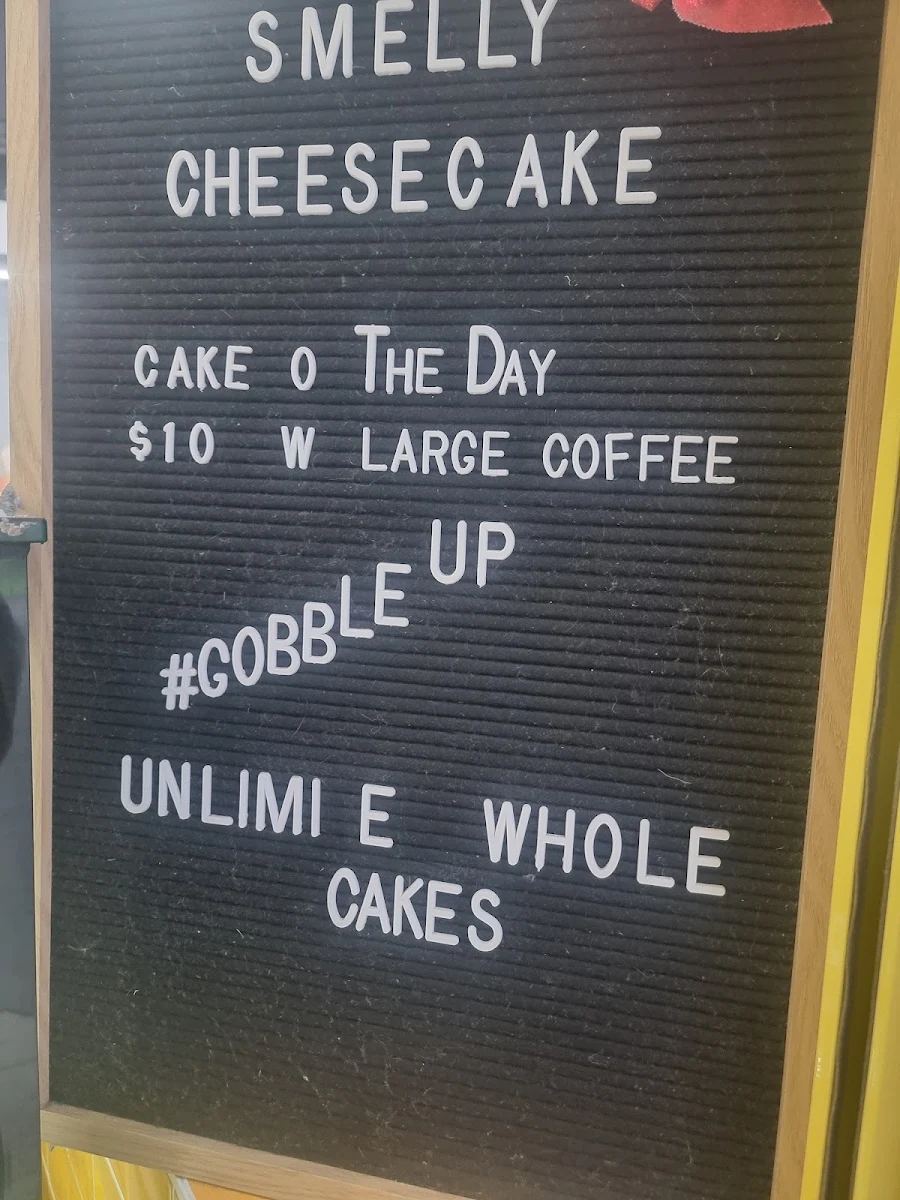 SMELLY
CHEESECAKE
CAKE O THE DAY
$10 W LARGE COFFEE
#GOBBLE UP
UNLIMI E WHOLE
CAKES